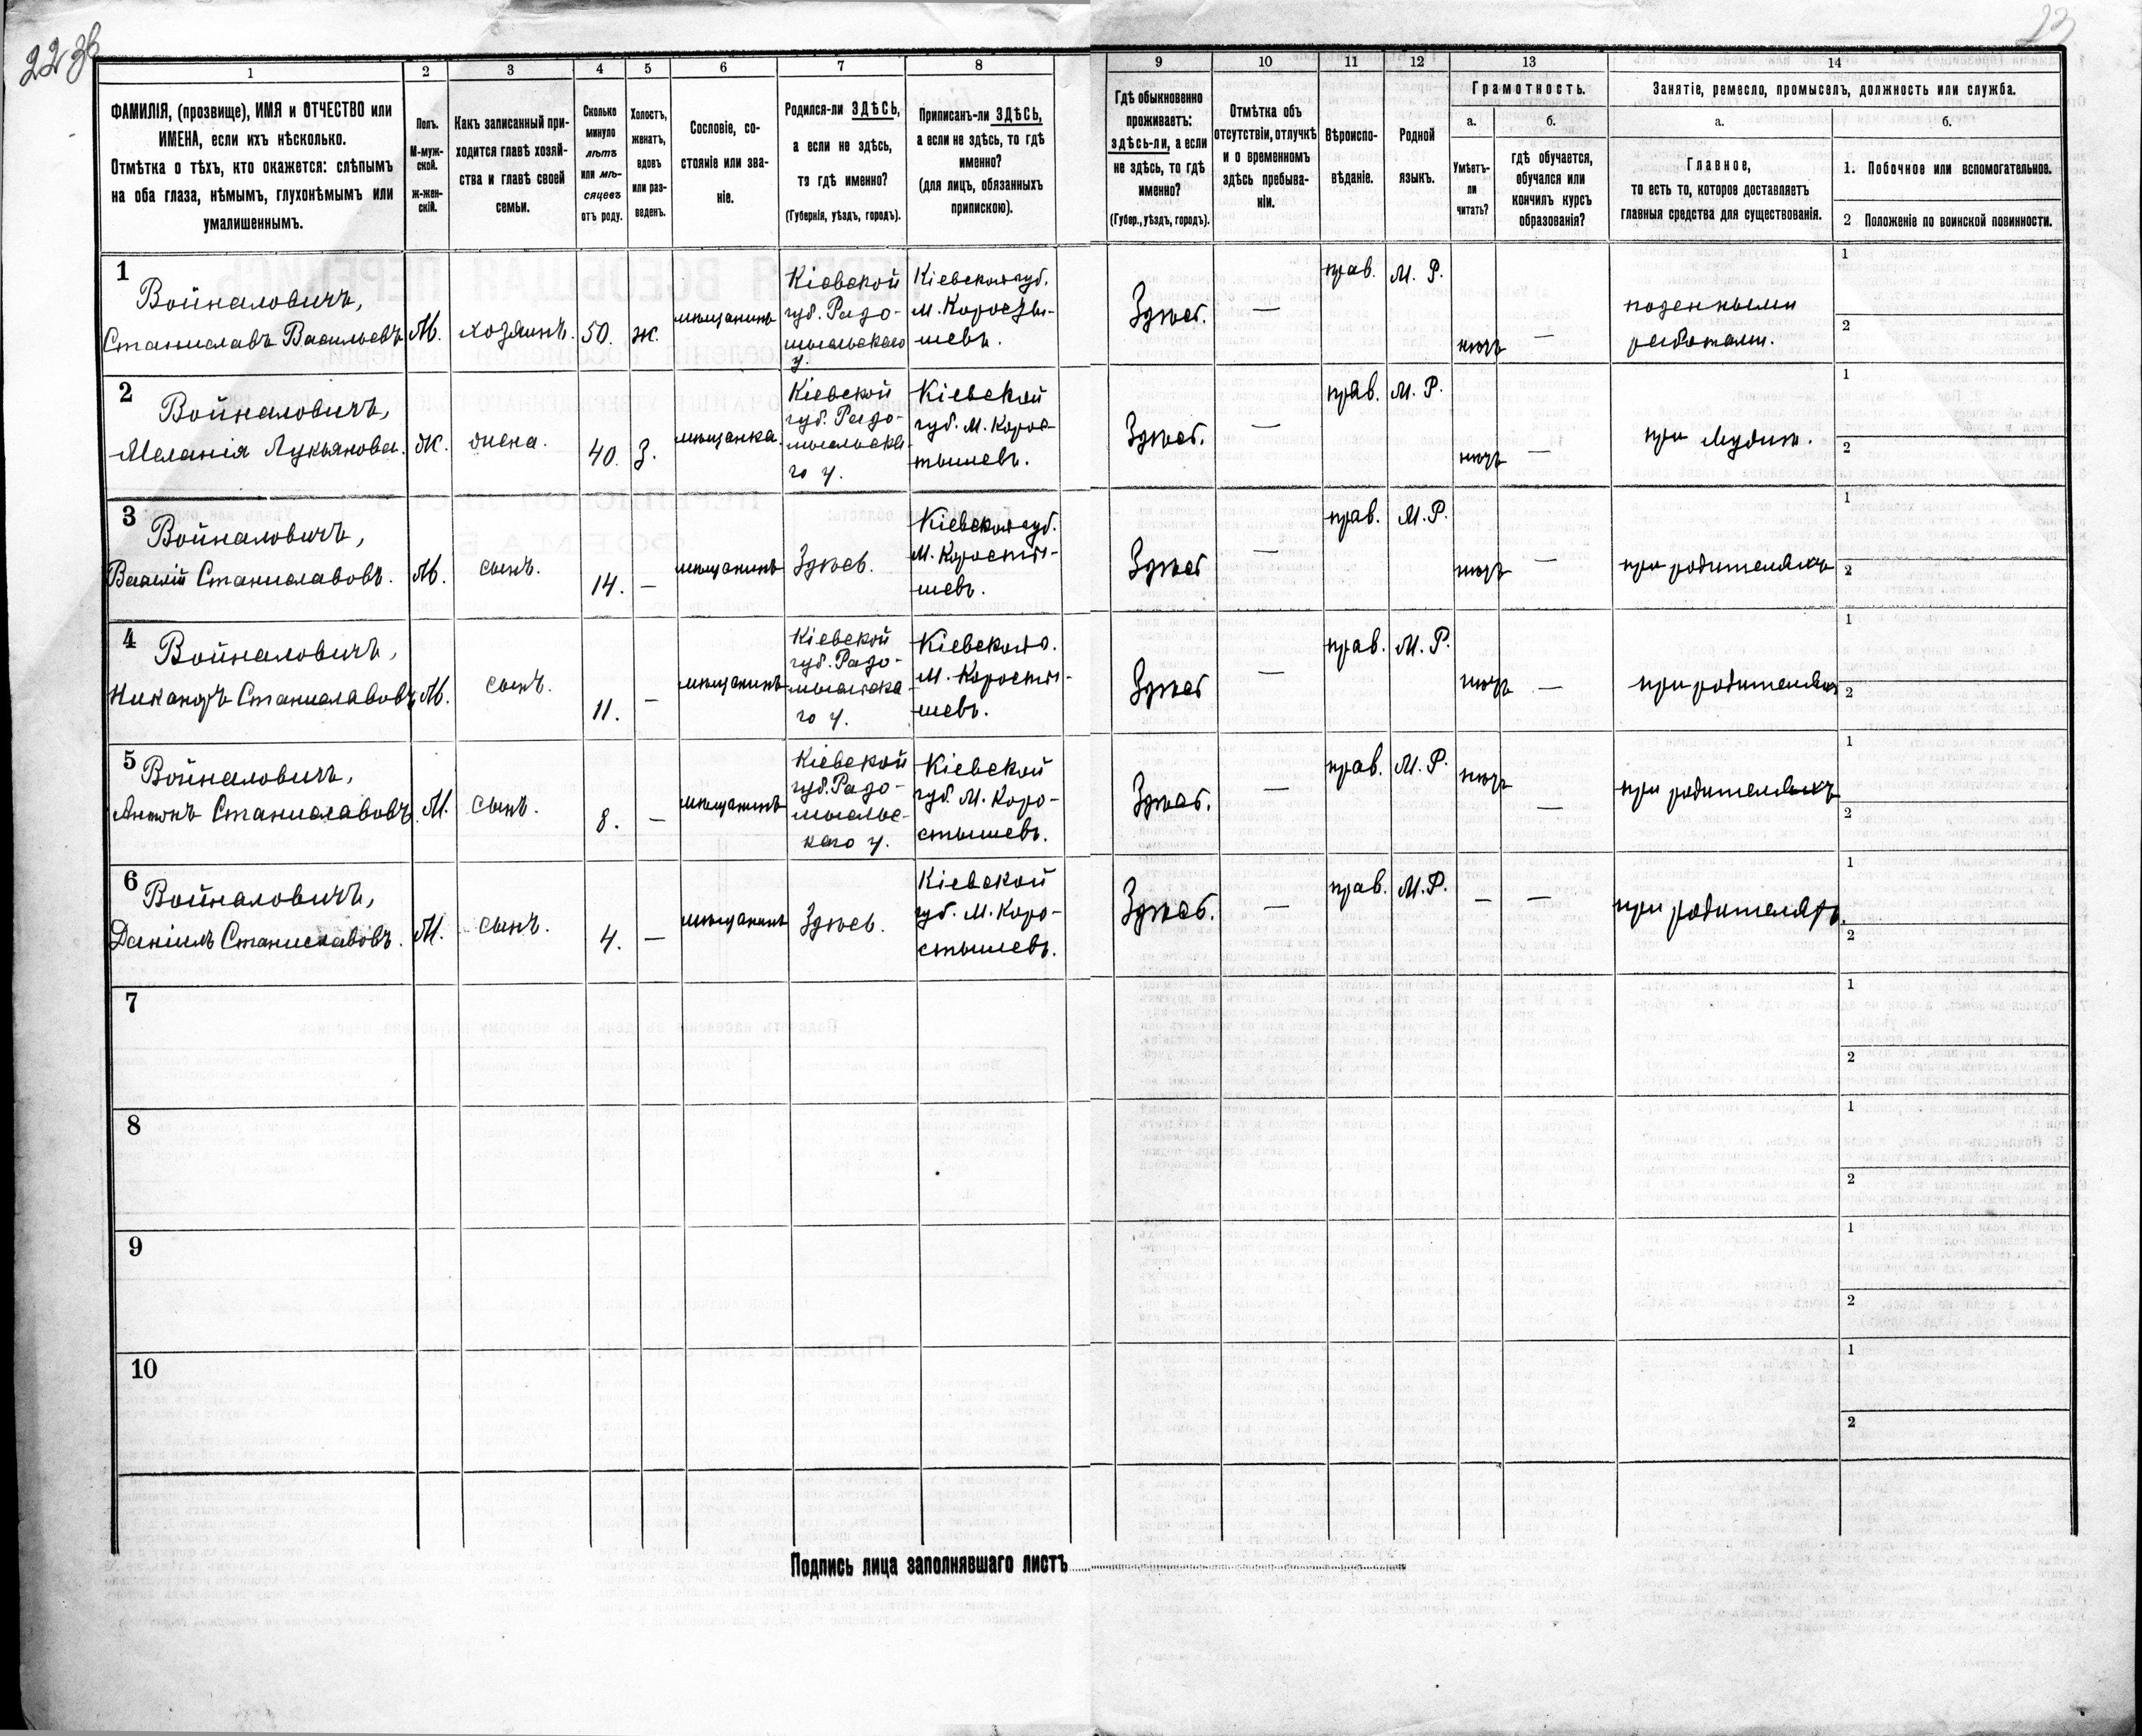 22 об
23
1
2
3
4
5
6
7
8
9
10
11
12
13
14
ФАМИЛІЯ, (прозвище), ИМЯ и ОТЧЕСТВО или
ИМЕНА, если ихъ нѣсколько.
Отмѣтка о тѣхъ, кто окажется: слѣпымъ
на оба глаза, нѣмымъ, глухонѣмымъ или
умалишеннымъ.
Полъ.
М-муж-
ской.
ж-жен-
скій.
Какъ записанный при-
ходится главѣ хозяй-
ства и главѣ своей
семьи.
Сколько
минуло
лѣтъ
или мѣ-
сяцевъ
отъ роду.
Холостъ,
женатъ,
вдовъ
или раз-
веденъ.
Сословіе, со-
стояніе или зва-
ніе.
Родился-ли ЗДѢСЬ,
а если не здѣсь,
то гдѣ именно?
(Губернія, уѣздъ, городъ).
Приписанъ-ли ЗДѢСЬ,
а если не здѣсь, то гдѣ
именно?
(для лицъ, обязанныхъ
припискою).
Гдѣ обыкновенно
проживаетъ:
здѣсь-ли, а если
не здѣсь, то гдѣ
именно?
(Губер., уѣздъ, городъ).
Отмѣтка объ
отсутствіи, отлучкѣ
и о временномъ
здѣсь пребыва-
ніи.
Вѣроиспо-
вѣданіе.
Родной
языкъ.
Грамотность.
а.
Умѣетъ-
ли
читать?
б.
гдѣ обучается,
обучался или
кончилъ курсъ
образованія?
Занятіе, ремесло, промыселъ, должность или служба.
а.
Главное,
то есть то, которое доставляетъ
главныя средства для существованія.
б.
1. Побочное или вспомогательное.
2 Положеніе по воинской повинности.
1
Войналовичъ,
Станиславъ Васильевъ
М.
хозяинъ.
50.
ж.
мѣщанинъ
Кіевской
губ. Радо-
мысльскаго
у.
Кіевской губ.
М. Коросты-
шевъ.
Здѣсь.
—
прав.
М. Р.
нѣтъ
—
поденными
работами.
1
2
2
Войналовичъ,
Меланія Лукьянова.
Ж.
жена.
40.
З.
мѣщанка.
Кіевской
губ. Радо-
мысльска-
го у.
Кіевской
губ. М. Корос-
тышевъ.
Здѣсь.
—
прав.
М. Р.
нѣтъ
—
при мужѣ.
1
2
3
Войналовичъ,
Василій Станиславовъ.
М.
сынъ.
14.
—
мѣщанинъ
Здѣсь.
Кіевской губ.
М. Коросты-
шевъ.
Здѣсь
—
прав.
М. Р.
нѣтъ
—
при родителяхъ
1
2
4
Войналовичъ,
Никаноръ Станиславовъ
М.
сынъ.
11.
—
мѣщанинъ
Кіевской
губ. Радо-
мысльска-
го у.
Кіевской г.
М. Коросты-
шевъ.
Здѣсь
—
прав.
М. Р.
нѣтъ
—
при родителяхъ
1
2
5
Войналовичъ,
Антонъ Станиславовъ
М.
сынъ.
8.
—
мѣщанинъ
Кіевской
губ. Радо-
мысльс-
каго у.
Кіевской
губ. М. Коро-
стышевъ.
Здѣсь.
—
прав.
М. Р.
нѣтъ
—
при родителяхъ
1
2
6
Войналовичъ,
Даніилъ Станиславовъ.
М.
сынъ.
4.
—
мѣщанинъ
Здѣсь.
Кіевской
губ. М. Коро-
стышевъ.
Здѣсь.
—
прав.
М. Р.
—
—
при родителяхъ.
1
2
7
1
2
8
1
2
9
1
2
10
1
2
Подпись лица заполнявшаго листъ